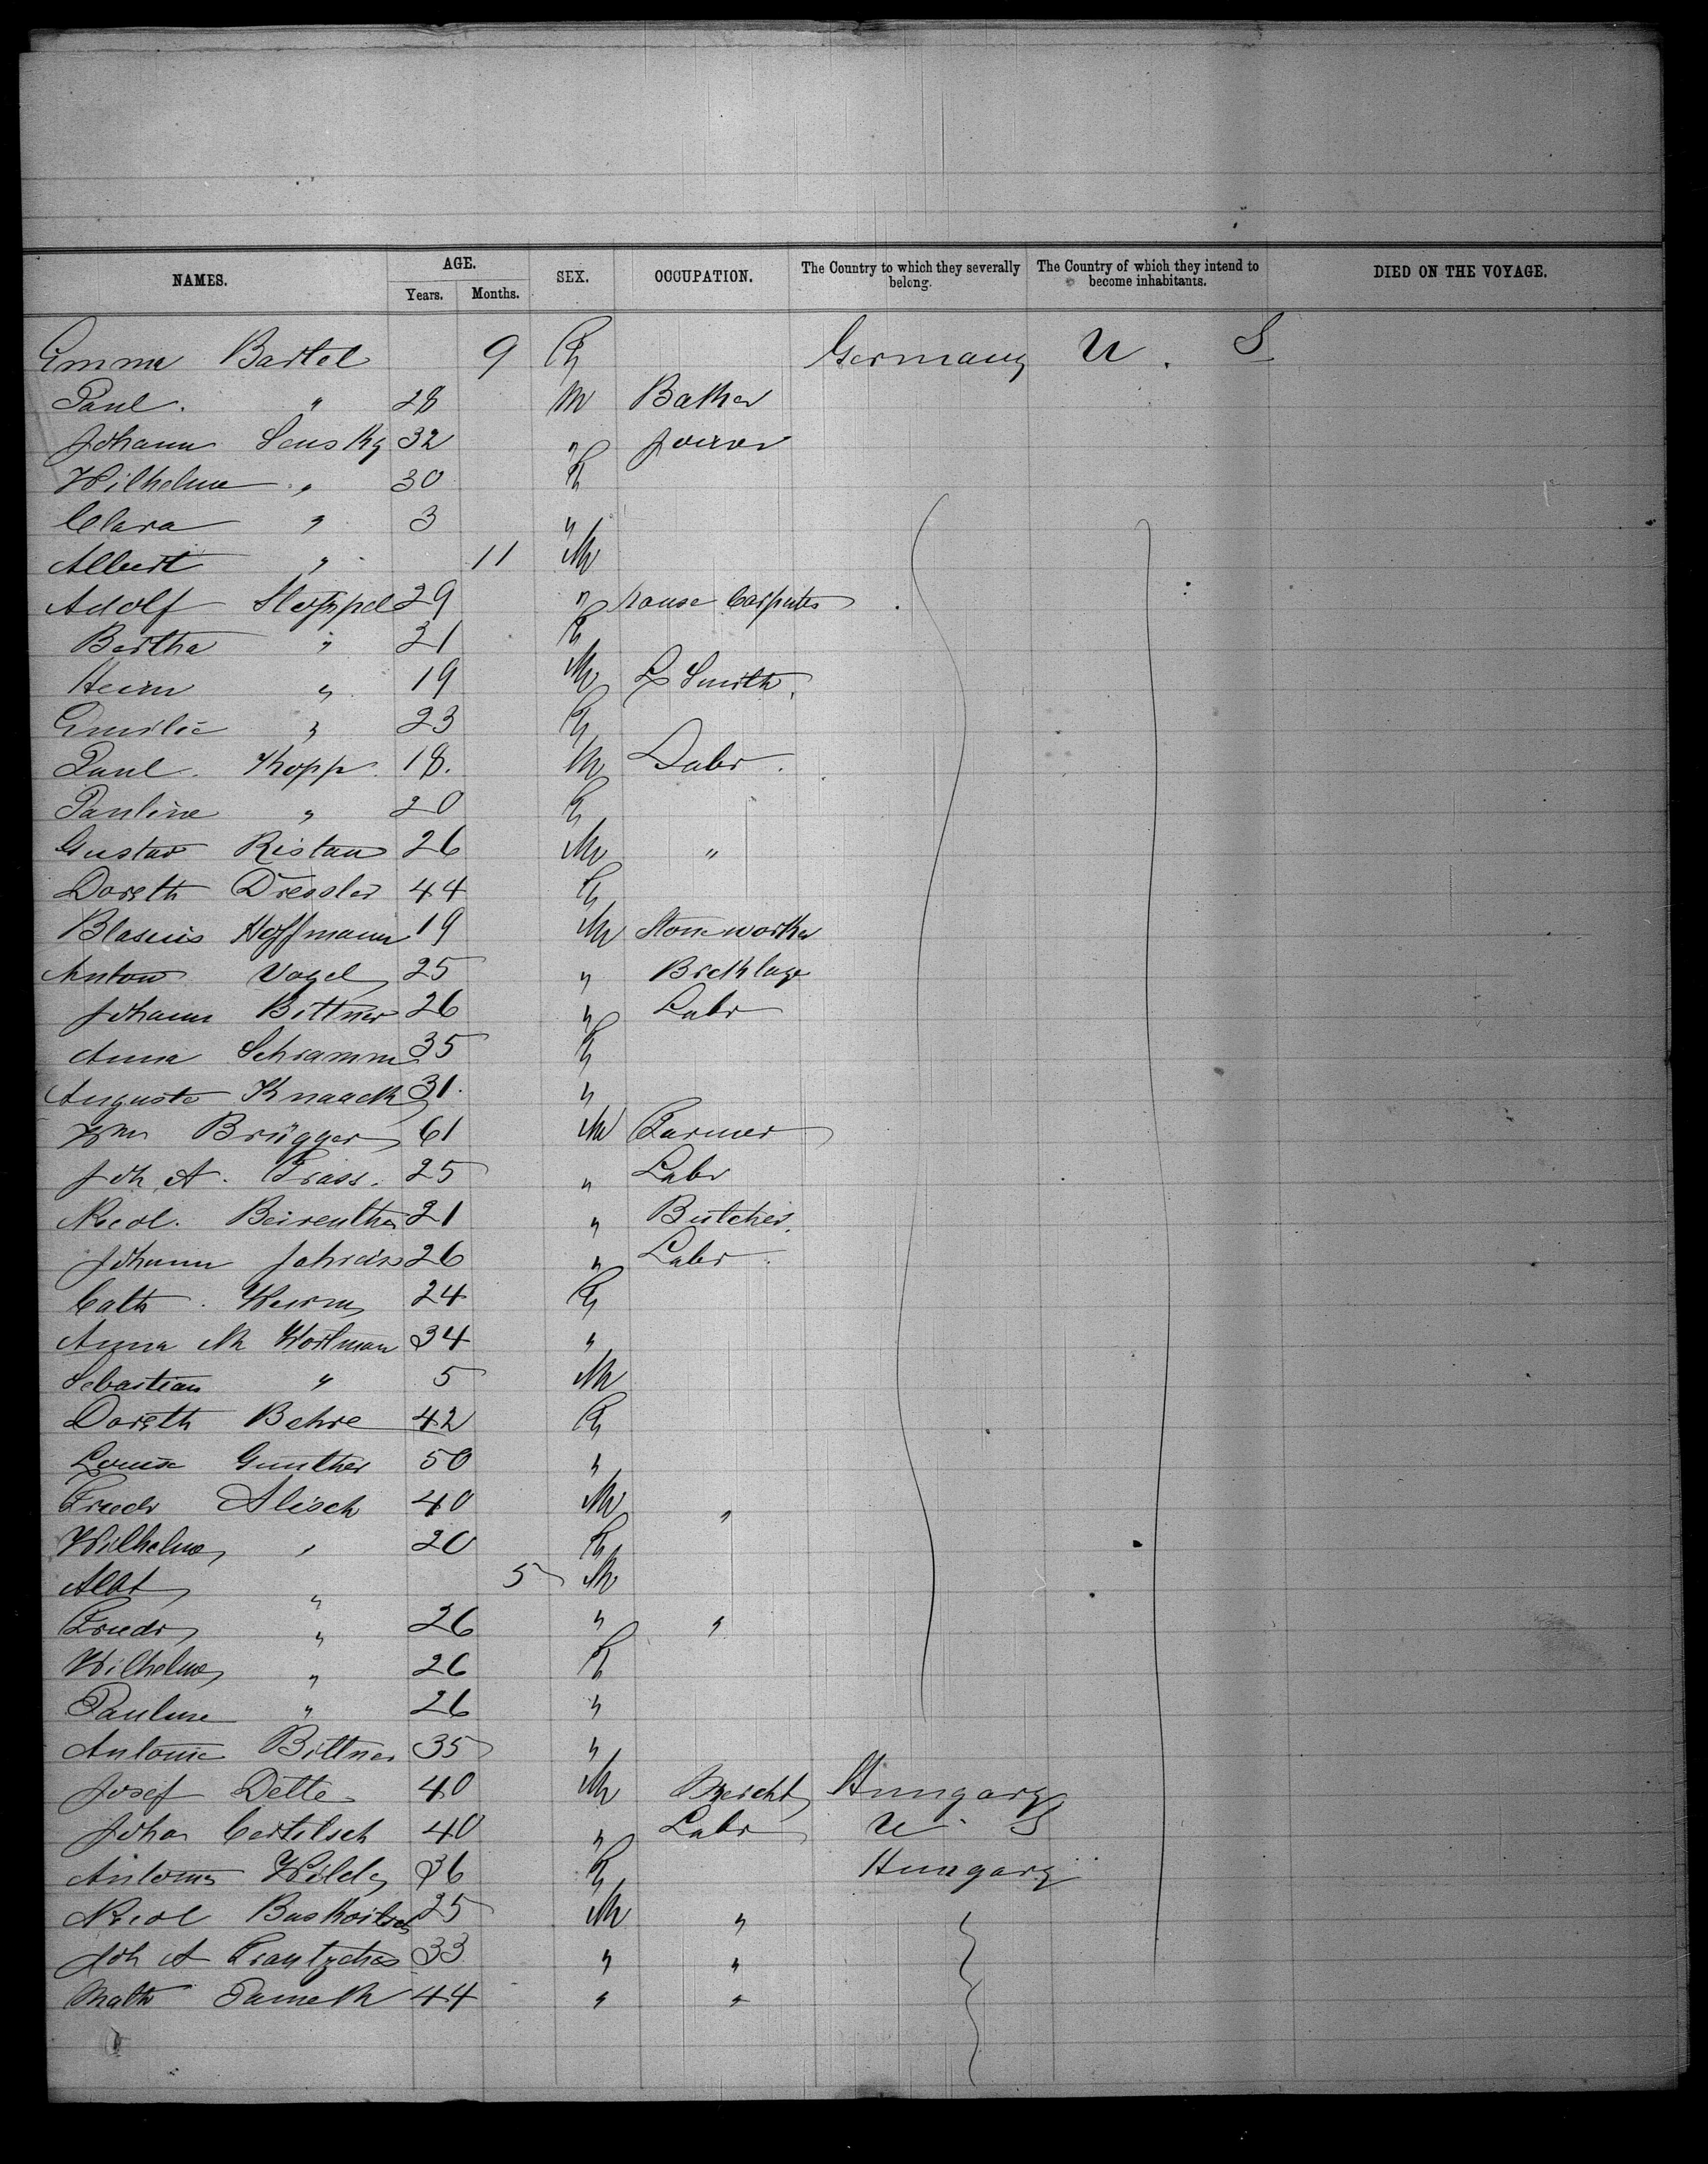 NAMES. AGE. SEX. OCCUPATION. The Country to which they severally belong. The Country of which they intend to become inhabitants. DIED ON THE VOYAGE.
Years. Months.
Emma Bartel 9 F Germany U. S
Paul " 28 M Baker
Johann Sensky 32 " Joiner
Wilhelme " 30 F
Clara " 3 "
Albert " 11 M
Adolf 29 " house Carpenter
Bertha " 21 F
Heinr " 19 M L Smith
Emilie " 23 F
Paul Kopp 18. M Labr.
Pauline " 20 F
Gustav Ristau 26 M "
Doroth Dressler 44 F
Blasius Hoffmann 19 M Stoneworker
Anton Vogel 25 " Bricklayr
Johann Bittner 26 " Labr
Anna Schramm 35 F
Auguste Knaack 31. "
Wm Brügger 61 M Farmer
Joh A. Frass. 25 " Labr
Nicol. Beireuther 21 " Butcher.
Johann 26 " Labr.
Cath. 24 F
Anna M Wortman 34 "
Sebastian " 5 M
Doroth Behre 42 F
Louise Gunther 50 "
Friedr Alisch 40 M "
Wilhelme " 20 F
Albt " 5 M
Friedr " 26 " "
Wilhelme " 26 F
Pauline " 26 "
Antonie Bittner 35 "
Josef Delte 40 M Mercht Hungary
Johan 40 " Labr U. S
Antonie Wilde 36 F Hungary
Nicol 25 M "
Joh A 33 " "
Math 44 " "